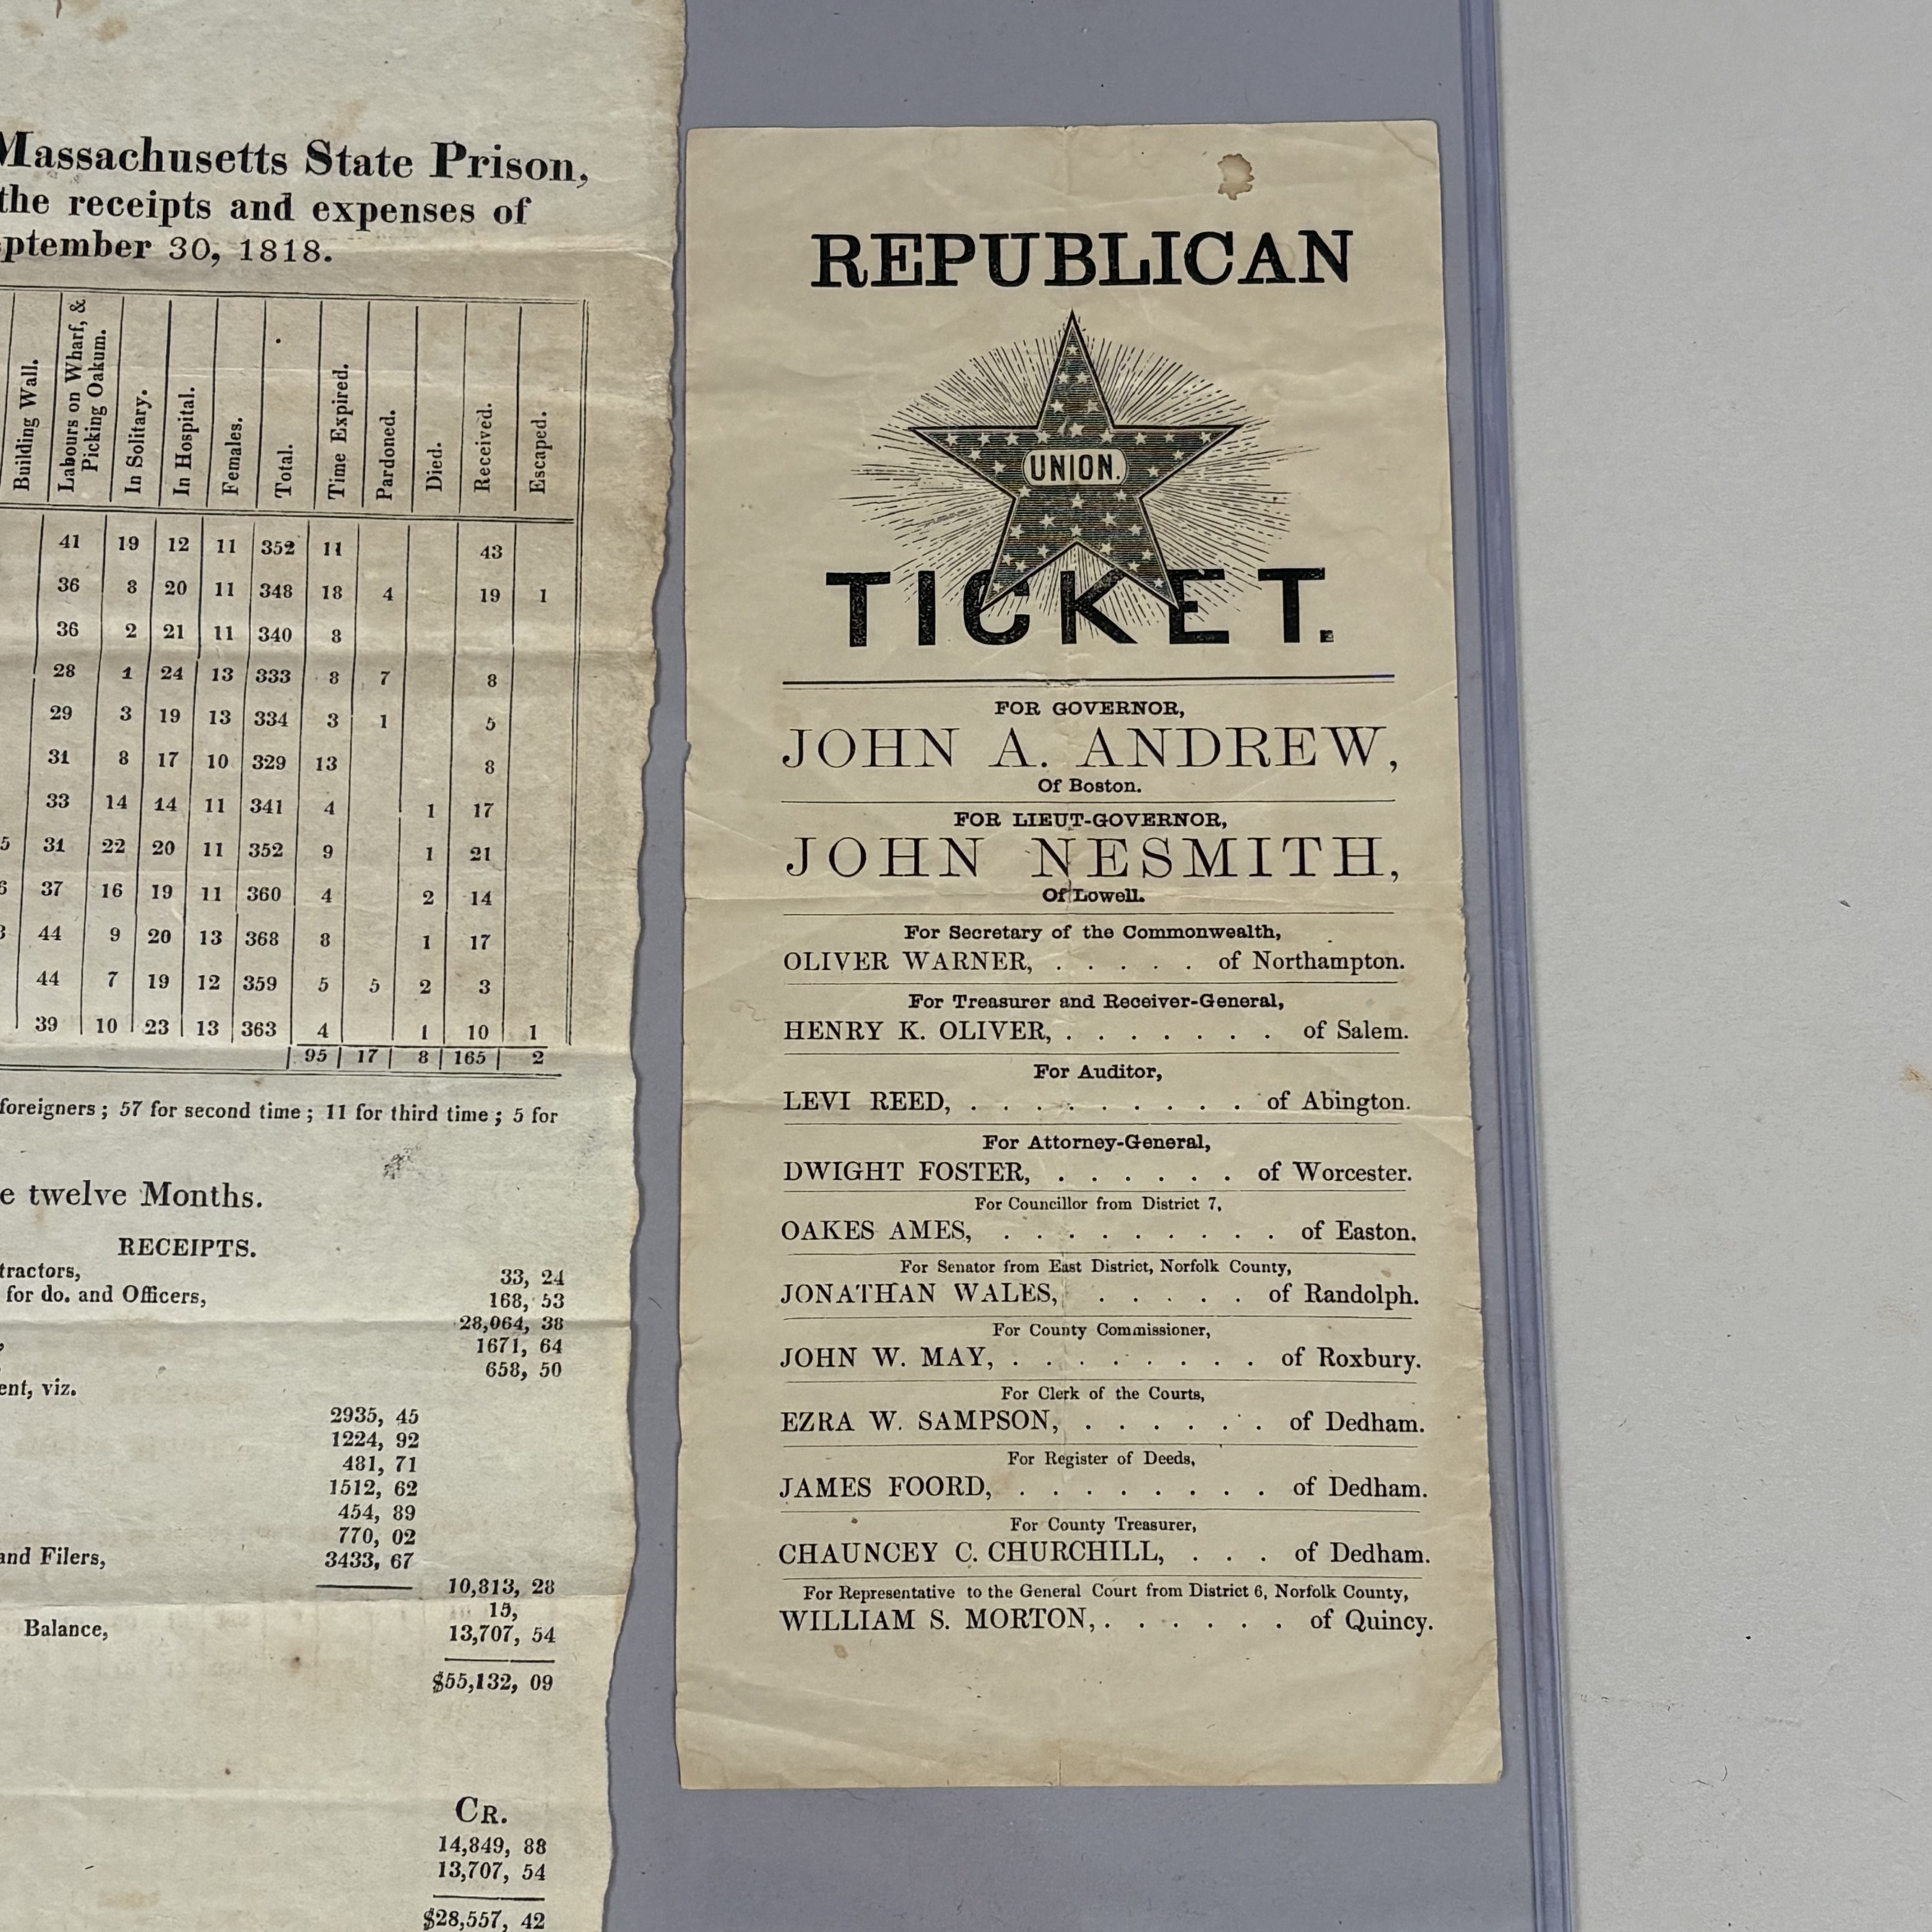 Massachusetts State Prison,
the receipts and expenses of
ptember 30, 1818.
Building Wall. Labours on Wharf, & Picking Oakum. In Solitary. In Hospital. Females. Total. Time Expired. Pardoned. Died. Received. Escaped.
41 19 12 11 352 11 43
36 8 20 11 348 18 4 19 1
36 2 21 11 340 8
28 1 24 13 333 8 7 8
29 3 19 13 334 3 1 5
31 8 17 10 329 13 8
33 14 14 11 341 4 1 17
5 31 22 20 11 352 9 1 21
6 37 16 19 11 360 4 2 14
3 44 9 20 13 368 8 1 17
44 7 19 12 359 5 5 2 3
39 10 23 13 363 4 1 10 1
95 17 8 165 2
foreigners; 57 for second time; 11 for third time; 5 for
e twelve Months.
RECEIPTS.
tractors, 33, 24
for do. and Officers, 168, 53
28,064, 38
1671, 64
658, 50
ent, viz.
2935, 45
1224, 92
481, 71
1512, 62
454, 89
770, 02
and Filers, 3433, 67
10,813, 28
15,
Balance, 13,707, 54
$55,132, 09
CR.
14,849, 88
13,707, 54
$28,557, 42
REPUBLICAN
UNION.
TICKET.
FOR GOVERNOR,
JOHN A. ANDREW,
Of Boston.
FOR LIEUT-GOVERNOR,
JOHN NESMITH,
Of Lowell.
For Secretary of the Commonwealth,
OLIVER WARNER, . . . . . of Northampton.
For Treasurer and Receiver-General,
HENRY K. OLIVER, . . . . . . . of Salem.
For Auditor,
LEVI REED, . . . . . . . . . of Abington.
For Attorney-General,
DWIGHT FOSTER, . . . . . . of Worcester.
For Councillor from District 7,
OAKES AMES, . . . . . . . . . of Easton.
For Senator from East District, Norfolk County,
JONATHAN WALES, . . . . . of Randolph.
For County Commissioner,
JOHN W. MAY, . . . . . . . . of Roxbury.
For Clerk of the Courts,
EZRA W. SAMPSON, . . . . . . of Dedham.
For Register of Deeds,
JAMES FOORD, . . . . . . . . of Dedham.
For County Treasurer,
CHAUNCEY C. CHURCHILL, . . . of Dedham.
For Representative to the General Court from District 6, Norfolk County,
WILLIAM S. MORTON, . . . . . . of Quincy.